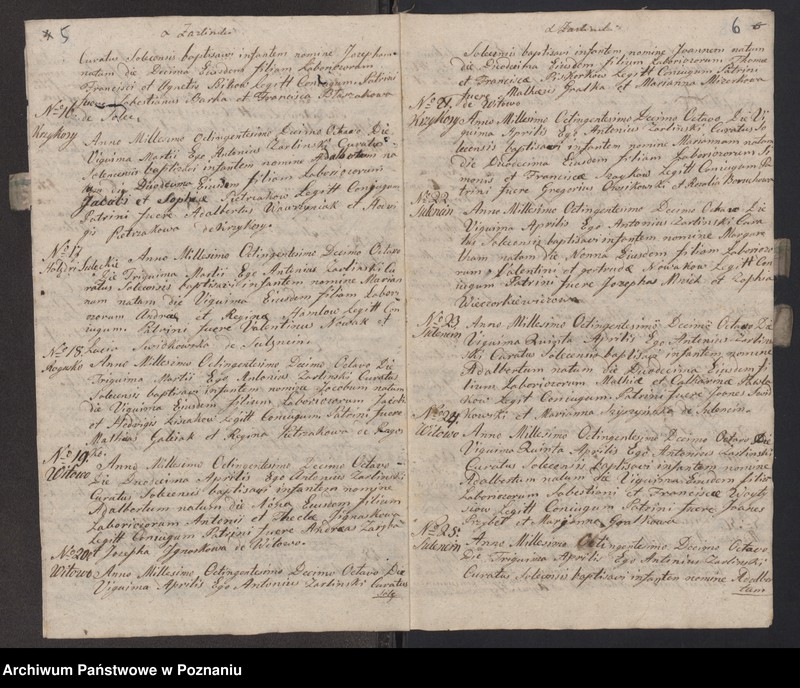 5
A Zarlinski
Curatus Solecensis baptisavi infantem nomine Josephum
natum die Decima Ejusdem filium Laboriozorum
Francisci et Agnetis Legitt Conjugum Patrini
fuere Sebestianus Barka et Francisca
de Solec
No 16
Krzykosy
Anno Millesimo Octingentesimo Decimo Octavo Die
Viguima Martii Ego Antonius Zarlinski Curatus
Solecensis baptisavi infantem nomine Adalbertum na
tum die Duodecima Ejusdem filium Laboriozorum
Jacobi et Sophia Pietrzakow Legitt Conjugum
Patrini fuere Adalbertus Wawrzyniak et Hedvi
gis Pietrzakowa de Krzykosy
No 17
Solecki Anno Millesimo Octingentesimo Decimo Octavo
Die Triguima Martii Ego Antonius Zarlinski Cu
ratus Solecensis baptisavi infantem nomine Marian
nam natam die Viguima Ejusdem filiam Labor
iozorum Andrea et Regina Legitt Con
jugum Patrini fuere Valentinus Nowak et
Lucia Swidkowska de Sulencin
No 18
Rogusko
Anno Millesimo Octingentesimo Decimo Octavo Die
Triguima Martii Ego Antonius Zarlinski Curatus
Solecensis baptisavi infantem nomine Jacobum natum
die Viguima Ejusdem filium Laboriozorum Jacobi
et Hedvigis Legitt Conjugum Patrini fuere
Mathias et Regina Pietrzakowa de Rogus
ko
No 19
Witowo
Anno Millesimo Octingentesimo Decimo Octavo
Die Duodecima Aprilis Ego Antonius Zarlinski
Curatus Solecensis baptisavi infantem nomine
Adalbertum natum die Nona Ejusdem filium
Laboriozorum Antonii et Thecla Jgnaskowa
Legitt Conjugum Patrini fuere Andreas
et Josepha Jgnaskowa de Witowo
No 20
Witowo
Anno Millesimo Octingentesimo Decimo Octavo Die
Viguima Aprilis Ego Antonius Zarlinski Curatus
Sole
6
A Zarlinski
Solecensis baptisavi infantem nomine Joannem natum
die Duodecima Ejusdem filium Laboriozorum Thoma
et Francisca Piskorkow Legitt Conjugum Patrini
fuere Mathias et Marianna
de Witowo
No 21
Krzykosy
Anno Millesimo Octingentesimo Decimo Octavo Die Vi
guima Aprilis Ego Antonius Zarlinski Curatus So
lecensis baptisavi infantem nomine Mariannam natam
die Duodecima Ejusdem filiam Laboriozorum Si
monis et Francisca Legitt Conjugum Pa
trini fuere Gregorius et Rosalia
No 22
Sulencin
Anno Millesimo Octingentesimo Decimo Octavo Die
Viguima Aprilis Ego Antonius Zarlinski Cura
tus Solecensis baptisavi infantem nomine Margare
tham natam die Nonna Ejusdem filiam Laborioz
orum Valentini et Gertruda Nowakow Legitt Con
jugum Patrini fuere Josephus et Zophia
Wieczorkiewiczowa
No 23
Sulencin
Anno Millesimo Octingentesimo Decimo Octavo Die
Viguima Quinta Aprilis Ego Antonius Zarlin
ski Curatus Solecensis baptisavi infantem nomine
Adalbertum natum die Duodecima Ejusdem fi
lium Laboriozorum Mathia et Catharina
kow Legit Conjugum Patrini fuere Joanes
kowski et Marianna de Sulencin
No 24
Witowo
Anno Millesimo Octingentesimo Decimo Octavo Die
Viguima Quinta Aprilis Ego Antonius Zarlinski
Curatus Solecensis baptisavi infantem nomine
Adalbertum natum die Viguima Ejusdem filium
Laboriozorum Sabestiani et Francisca
Legitt Conjugum Patrini fuere Joanes
et Marjanna
No 25
Sulencin
Anno Millesimo Octingentesimo Decimo Octavo
Die Triguima Aprilis Ego Antonius Zarlinski
Curatus Solecensis baptisavi infantem nomine Adalber
tum
Archiwum Państwowe w Poznaniu